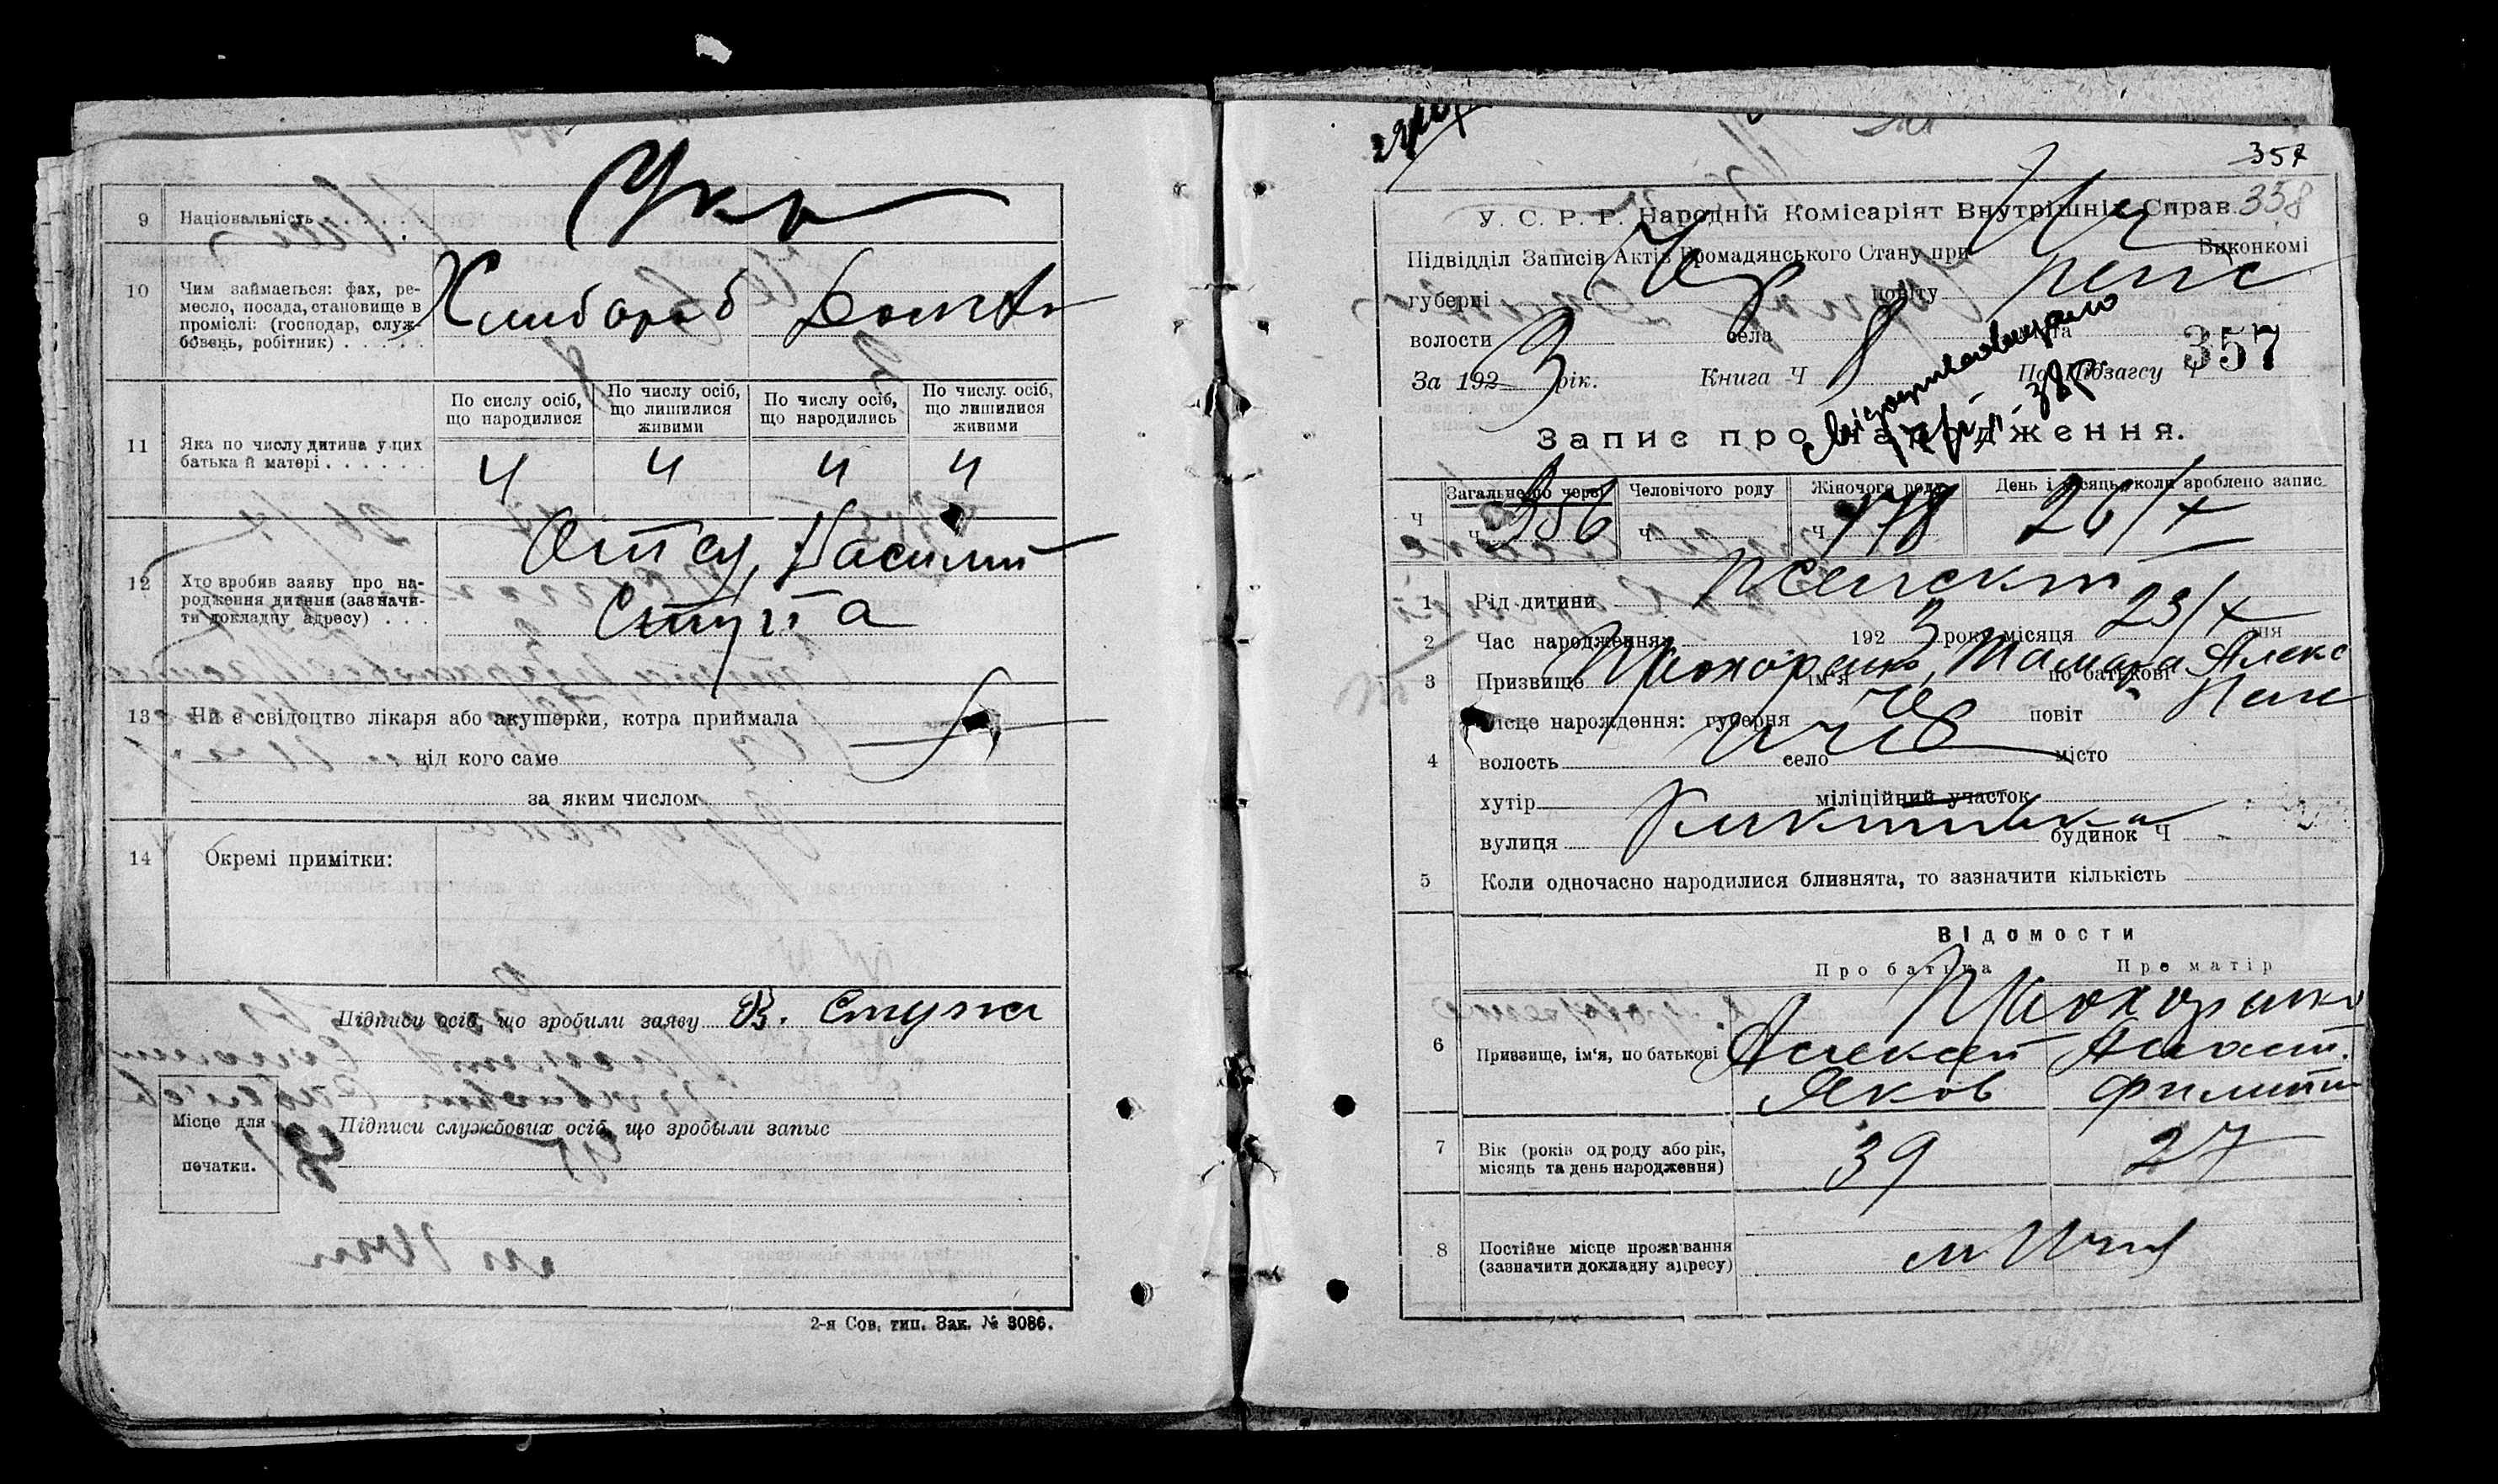 9 Національність . . . . . . Укр
10 Чим займається: фах, ре-
месло, посада, становище в
проміслі: (господар, служ-
бовець, робітник) . . . . .
Хлибороб Домаш
11 Яка по числу дитина у цих
батька й матері . . . . . .
По сислу осіб, що народилися
По числу осіб, що лишилися живими
По числу осіб, що народились
По числу осіб, що лишилися живими
4 4 4 4
12 Хто зробив заяву про на-
родження дитини (зазначи-
ти докладну адресу) . . .
Отец, Василий
Ступа
13 Чи є свідоцтво лікаря або акушерки, котра приймала
від кого саме
за яким числом
14 Окремі примітки:
Підписи осіб, що зробили заяву В. Ступа
Місце для
печатки.
Підписи службових осіб, що зробыли запыс
2-я Сов. тип. Зак. № 3086.
357
358
У. С. Р. Р. Народній Комісаріят Внутрішніх Справ
Підвідділ Записів Актів Громадянського Стану при Ич Виконкомі
губерні Чер повіту
волости села міста
357
За 192 3 рік. Книга Ч 8 По Підзагсу Ч
Запис про народження.
Ч Загальне по черзі Человічого роду Жіночого роду День і місяць, коли зроблено запис
Ч 356 Ч Ч 178 26/X
1 Рід дитини Женский
2 Час народження: 192 3 року місяця 23/X дня
3 Призвище Прохоренко, ім'я Тамара по батькові Алекс
Місце народження: губерня Чер повіт
4 волость Ич село місто
хутір міліційний участок
вулиця будинок Ч
5 Коли одночасно народилися близнята, то зазначити кількість
Відомости
Про батька Про матір
Прохоренко
6 Призвище, ім'я, по батькові Алексей Анаст.
Яков Филипп
7 Вік (років од роду або рік,
місяць та день народження) 39 27
8 Постійне місце проживання
(зазначити докладну адресу) м Ичня